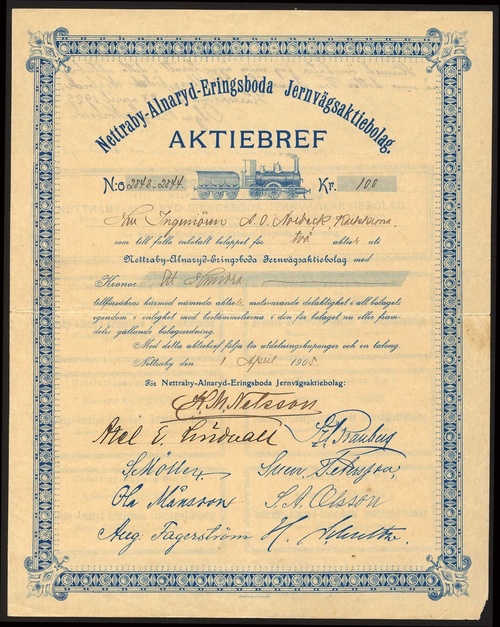 Nettraby-Alnaryd-Eringsboda Jernvägsaktiebolag.
AKTIEBREF
N:o 2843-2844. Kr. 100
Ingeniören A. O. Norbeck, Karlskrona
som till fullo inbetalt beloppet för två aktier uti
Nettraby-Alnaryd-Eringsboda Jernvägsaktiebolag med
Kronor Ett Hundra
tillförsäkras härmed nämnda aktier motsvarande delaktighet i all bolagets
egendom i enlighet med bestämmelserna i den för bolaget nu eller fram-
deles gällande bolagsordning.
Med detta aktiebref följa tio utdelningskuponger och en talong.
Nettraby den 1 April 1905.
För Nettraby-Alnaryd-Eringsboda Jernvägsaktiebolag:
K. M. Nelsson
Axel T. Lindvall
S. Möller Sven Petersson,
Ola Månsson S. A. Olsson
Aug Fagerström H. Schultz